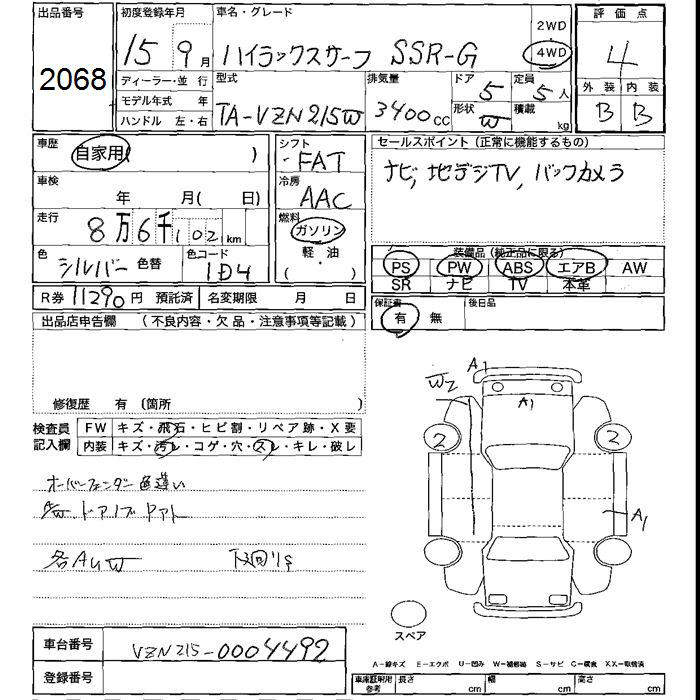 出品番号
2068
初度登録年月
15 9月
車名・グレード
ハイラックスサーフ SSR-G
2WD
4WD
評価点
4
外装 内装
B B
ディーラー・並行
モデル年式 年
ハンドル 左・右
型式
TA-VZN215W
排気量
3400cc
ドア 5
形状 W
定員 5人
積載 kg
車歴
自家用( )
シフト
FAT
車検
年 月( 日)
冷房
AAC
走行
8万6千102km
燃料
ガソリン
軽・油
( )
色
シルバー 色替
色コード
1D4
R券 11290円 預託済 名変期限 月 日
セールスポイント(正常に機能するもの)
ナビ, 地デジTV, バックカメラ
装備品(純正品に限る)
PS PW ABS エアB AW
SR ナビ TV 本革
保証書
有 無
後日品
出品店申告欄 (不良内容・欠品・注意事項等記載)
修復歴 有(箇所 )
検査員
記入欄
FW キズ・飛石・ヒビ割・リペア跡・X要
内装 キズ・汚レ・コゲ・穴・スレ・キレ・破レ
オーバーフェンダー色違い
各AUW 下廻りS
A1
W2
A1
2
2
A1
スペア
車台番号
VZN215-0004492
登録番号
A-線キズ E-エクボ U-凹み W-補修跡 S-サビ C-腐食 XX-取替済
車庫証明用
参考
長さ cm
幅 cm
高さ cm